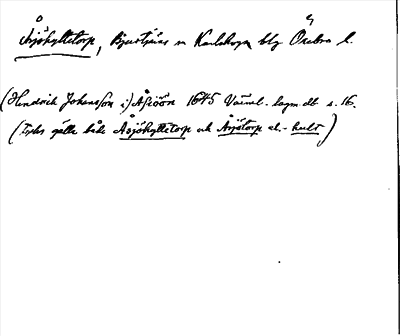 Åsjöhyttetorp, Bjurtjärns sn Karlskoga blg Örebro l.
(Hendrich Johansson i) Åsiöön 1645 Värml. lagm db s. 16.
(Tycks gälla både Åsjöhyttetorp och Åsjötorp el. -hult)